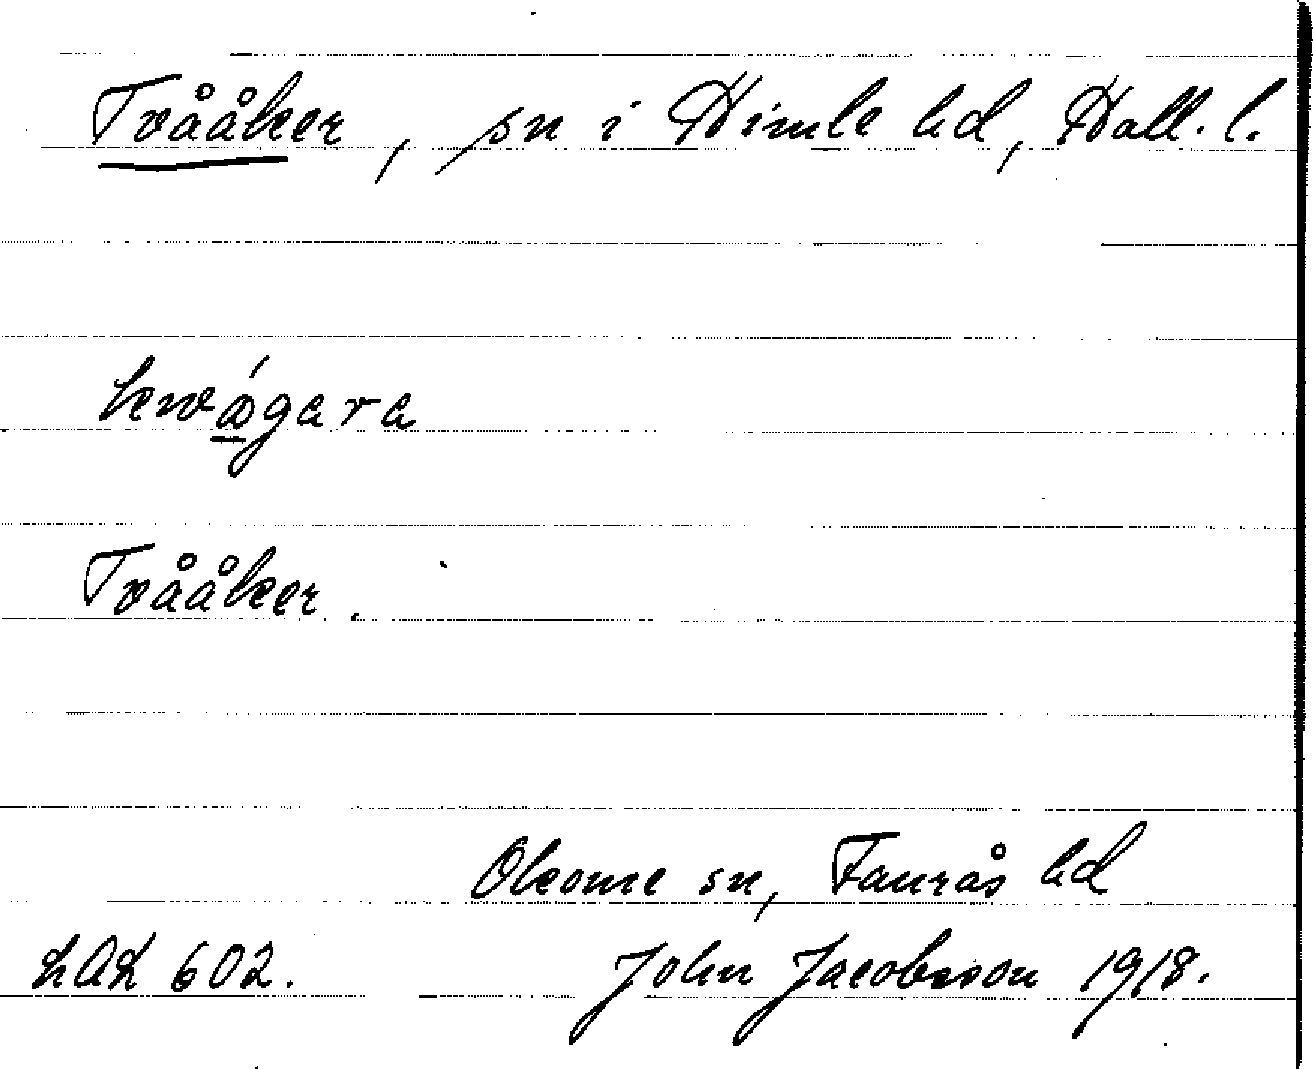 Tvååker, sn i Himle hd, Hall. l.
Tvååker.
Okome sn, Faurås hd
LAL 602. John Jacobsson 1918.